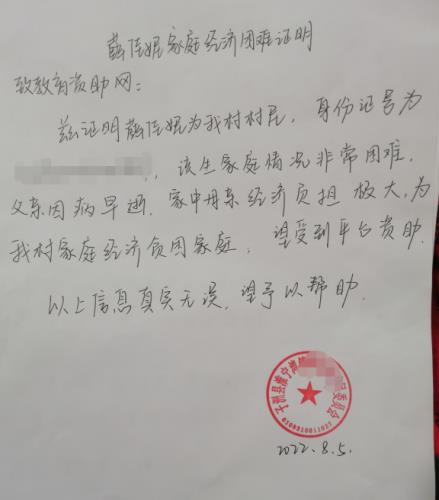 薛佳妮家庭经济困难证明
致教育资助网：
兹证明薛佳妮为我村村民，身份证号为
，该生家庭情况非常困难，
父亲因病早逝，家中母亲经济负担极大，为
我村家庭经济贫困家庭，望受到平台资助。
以上信息真实无误，望予以帮助。
子洲县淮宁湾 委员会
2022.8.5.